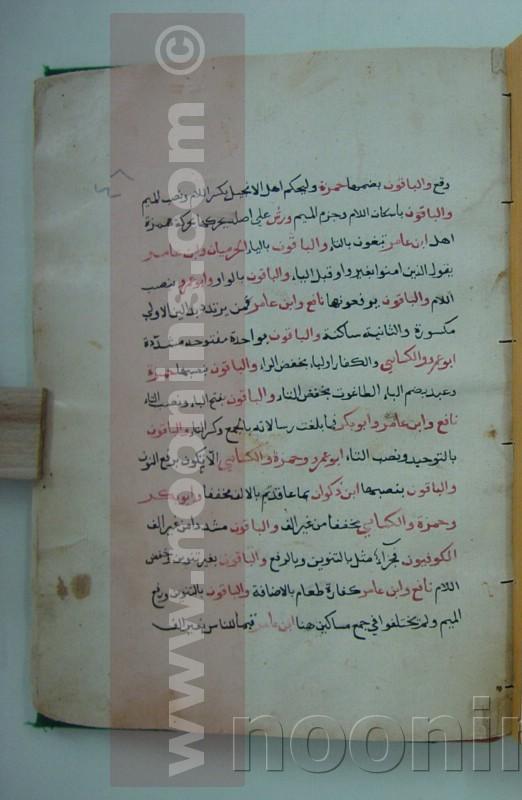 رفع والباقون بضمها حمزة وليحكم اهل الانجيل بكسر اللام ونصب الميم
والباقون باسكان اللام وجزم الميم ورش على اصله يحركها بحركة همزة
اهل ابن عامر تبغون بالتاء والباقون بالياء الحرميان وابن عامر
يقول الذين امنوا بغير واو قبل الياء والباقون بالواو وابوعمرو بنصب
اللام والباقون يرفعونها نافع وابن عامر من يرتدد بدالين الاولى
مكسورة والثانية ساكنة والباقون بواحدة مفتوحة مشددة
ابوعمرو والكسائي والكفار اولياء بخفض الراء والباقون بنصبها حمزة
وعبد بضم الباء الطاغوت بخفض التاء والباقون بفتح الباء ونصب التاء
نافع وابن عامر وابوبكر فما بلغت رسالاته بالجمع وكسر التاء والباقون
بالتوحيد ونصب التاء ابوعمرو وحمزة والكسائي الا يكون برفع النون
والباقون بنصبها ابن ذكوان بما عاقدتم بالالف مخففا وابوبكر
وحمزة والكسائي مخففا من غير الف والباقون مشددا من غير الف
الكوفيون فجزاء مثل بالتنوين وبالرفع والباقون بغير تنوين وخفض
اللام نافع وابن عامر كفارة طعام بالاضافة والباقون بالتنوين ورفع
الميم ولم يختلفوا في جمع مساكين هنا ابن عامر قيما للناس بغير الف
www.noorins.com ©
noorin